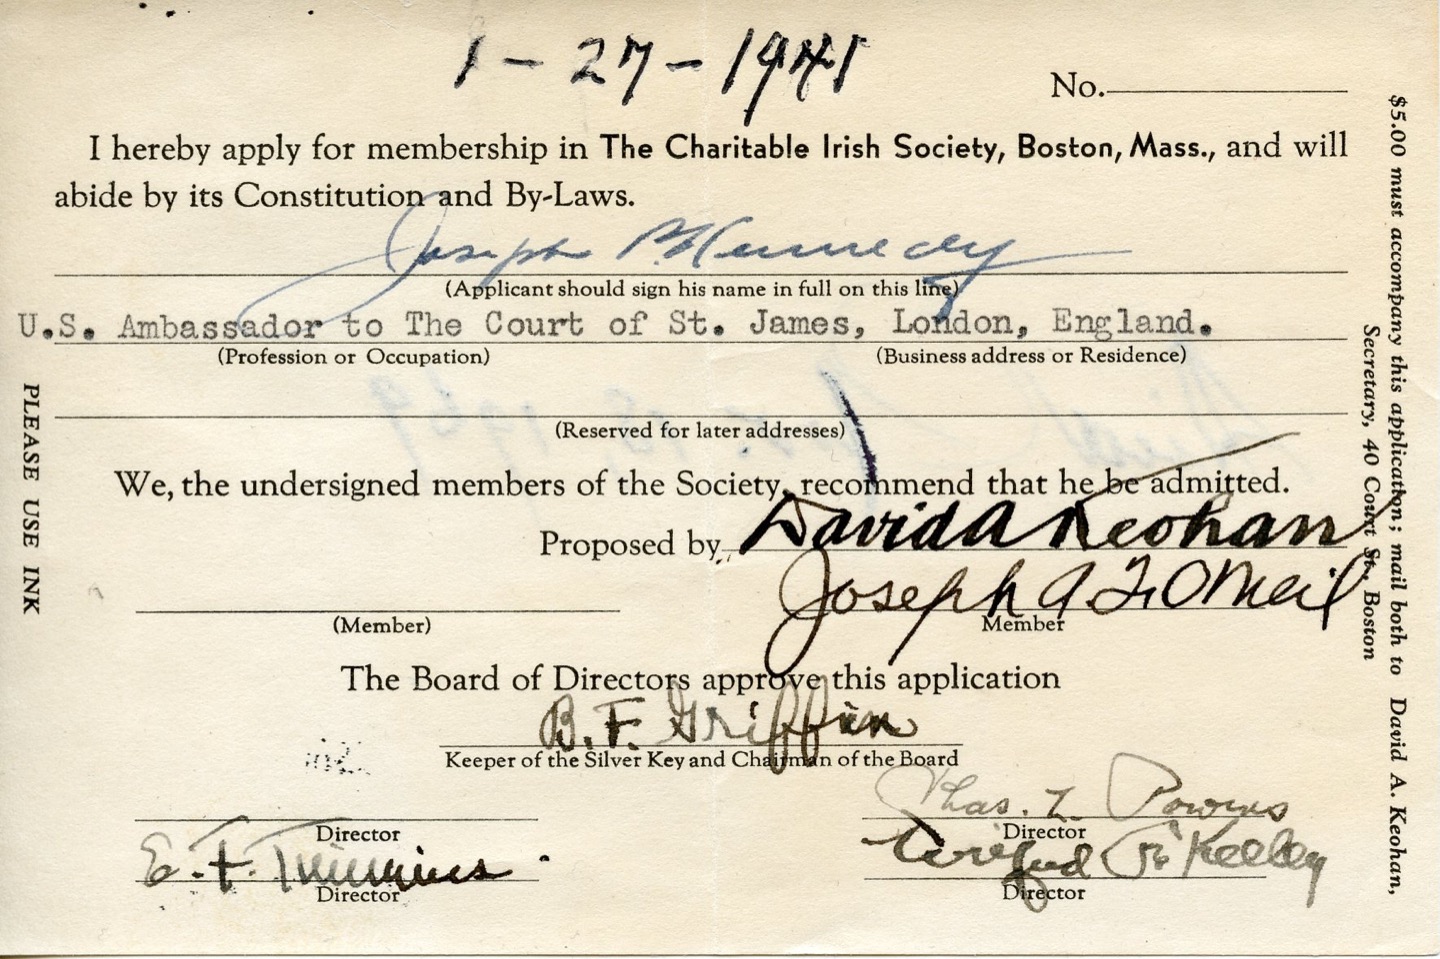 1 - 27 - 1941
No.
I hereby apply for membership in The Charitable Irish Society, Boston, Mass., and will
abide by its Constitution and By-Laws.
Joseph P. Kennedy
(Applicant should sign his name in full on this line)
U.S. Ambassador to The Court of St. James, London, England.
(Profession or Occupation) (Business address or Residence)
(Reserved for later addresses)
We, the undersigned members of the Society, recommend that he be admitted.
Proposed by David A Keohan
Joseph A. F. O'Neil
(Member) Member
The Board of Directors approve this application
B. F. Griffin
Keeper of the Silver Key and Chairman of the Board
Chas. L. Powers
Director Director
E. F. Timmins Kelley
Director Director
PLEASE USE INK
$5.00 must accompany this application; mail both to David A. Keohan,
Secretary, 40 Court St., Boston